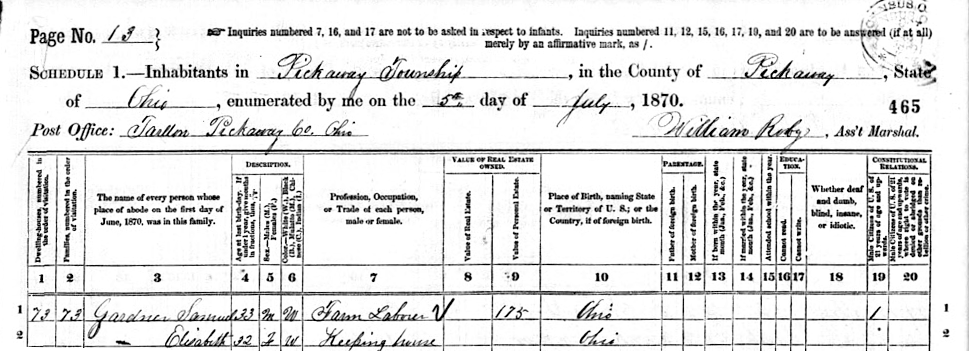 Page No. 13 } ☞ Inquiries numbered 7, 16, and 17 are not to be asked in respect to infants. Inquiries numbered 11, 12, 15, 16, 17, 19, and 20 are to be answered (if at all)
merely by an affirmative mark, as /.
SCHEDULE 1.—Inhabitants in Pickaway Township, in the County of Pickaway, State
of Ohio, enumerated by me on the 5th day of July, 1870.
465
Post Office: Tarlton Pickaway Co. Ohio William Roby, Ass't Marshal.
DESCRIPTION. VALUE OF REAL ESTATE OWNED. PARENTAGE. EDUCATION. CONSTITUTIONAL RELATIONS.
Dwelling-houses, numbered in the order of visitation.
Families, numbered in the order of visitation.
The name of every person whose place of abode on the first day of June, 1870, was in this family.
Age at last birth-day. If under 1 year, give months in fractions, thus, 3/12
Sex.—Males (M.), Females (F.)
Color.—White (W.), Black (B.), Mulatto (M.), Chinese (C.), Indian (I.)
Profession, Occupation, or Trade of each person, male or female.
Value of Real Estate.
Value of Personal Estate.
Place of Birth, naming State or Territory of U. S.; or the Country, if of foreign birth.
Father of foreign birth.
Mother of foreign birth.
If born within the year, state month (Jan., Feb., &c.)
If married within the year, state month (Jan., Feb., &c.)
Attended school within the year.
Cannot read.
Cannot write.
Whether deaf and dumb, blind, insane, or idiotic.
Male Citizens of U. S. of 21 years of age and upwards.
Male Citizens of U. S. of 21 years of age and upwards, where right to vote is denied or abridged on other grounds than rebellion or other crime.
1 2 3 4 5 6 7 8 9 10 11 12 13 14 15 16 17 18 19 20
1 73 73 Gardner Samuel 33 M W Farm Laborer 175 Ohio 1 1
2 — Elisabeth 32 F W Keeping house Ohio 2